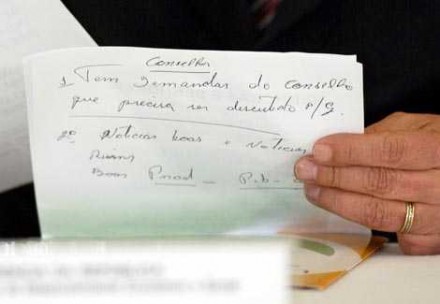 Conselho
1 Tem demandas do conselho
que precisa ser discutido P/G.
2º Noticias boas e Noticias
Ruins
Boas Prod -